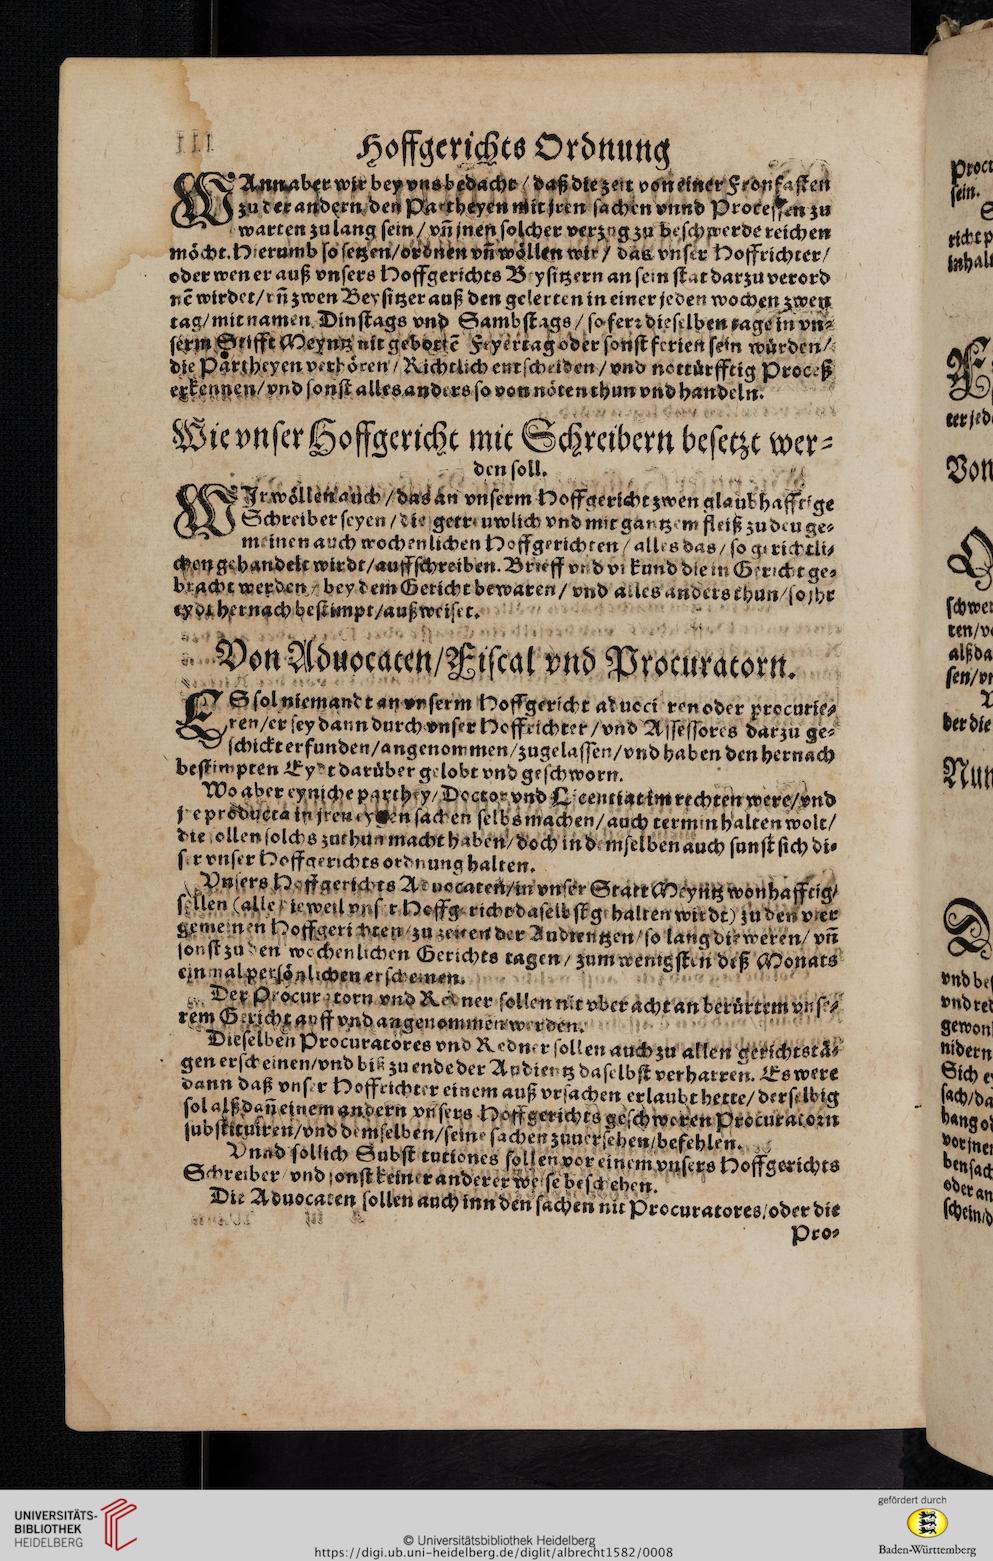 III
Hoffgerichts Ordnung
WAnn aber wir bey vns bedacht / daß die zeit von einer Fronfasten
zu der andern den Partheyen mit jren sachen vnnd Processen zu
warten zu lang sein / vñ jnen solcher verzug zu beschwerde reichen
möcht. Hierumb so setzen / ordnen vñ wöllen wir / das vnser Hoffrichter /
oder wen er auß vnsers Hoffgerichts Beysitzern an sein stat darzu verord
nẽ wirdet / vñ zwen Beysitzer auß den gelerten in einer jeden wochen zwen
tag / mit namen Dinstags vnd Sambstags / so ferr dieselben tage in vn=
serm Stifft Meyntz nit gebottẽ Feyertag oder sonst ferien sein würden /
die Partheyen verhören / Richtlich entscheiden / vnd nottürfftig Proceß
erkennen / vnd sonst alles anders so von nöten thun vnd handeln.
Wie vnser Hoffgericht mit Schreibern besetzt wer=
den soll.
WJr wöllen auch / das an vnserm Hoffgericht zwen glaubhafftige
Schreiber seyen / die getreuwlich vnd mit gantzem fleiß zu den ge=
meinen auch wochenlichen Hoffgerichten / alles das / so gerichtli=
chen gehandelt wirdt / auffschreiben. Brieff vnd vrkund die in Gericht ge=
bracht werden / bey dem Gericht bewaren / vnd alles anders thun / so jhr
eydt hernach bestimpt / außweiset.
Von Aduocaten / Fiscal vnd Procuratorn.
ES sol niemandt an vnserm Hoffgericht aduociren oder procurie=
ren / er sey dann durch vnser Hoffrichter / vnd Assessores darzu ge=
schickt erfunden / angenommen / zugelassen / vnd haben den hernach
bestimpten Eydt darüber gelobt vnd geschworn.
Wo aber eyniche parthey / Doctor vnd Licentiat im rechten were / vnd
je producta in jren eygen sachen selbs machen / auch termin halten wolt /
die sollen solchs zuthun macht haben / doch in demselben auch sunst sich di=
ser vnser Hoffgerichts ordnung halten.
Vnsers Hoffgerichts Aduocaten / in vnser Statt Meyntz wonhafftig /
sollen (alle dieweil vnser Hoffgericht daselbst gehalten wirdt) zu den vier
gemeinen Hoffgerichten / zu zeiten der Audientzen / so lang die weren / vñ
sonst zu den wochenlichen Gerichts tagen / zum wenigsten deß Monats
ein mal persönlichen erscheinen.
Der Procuratorn vnd Redner sollen nit vber acht an berürtem vnse=
rem Gericht auff vnd angenommen werden.
Dieselben Procuratores vnd Redner sollen auch zu allen gerichtstä=
gen erscheinen / vnd biß zu ende der Audientz daselbst verharren. Es were
dann daß vnser Hoffrichter einem auß vrsachen erlaubt hette / derselbig
sol alßdañ einem andern vnsers Hoffgerichts geschworen Procuratorn
substituiren / vnd demselben / seine sachen zuuersehen / befehlen.
Vnnd söllich Substitutiones sollen vor einem vnsers Hoffgerichts
Schreiber / vnd sonst keiner anderer weise beschehen.
Die Aduocaten sollen auch inn den sachen nit Procuratores / oder die
Pro=
sein.
Von
Nun
UNIVERSITÄTS-
BIBLIOTHEK
HEIDELBERG
© Universitätsbibliothek Heidelberg
https://digi.ub.uni-heidelberg.de/diglit/albrecht1582/0008
gefördert durch
Baden-Württemberg